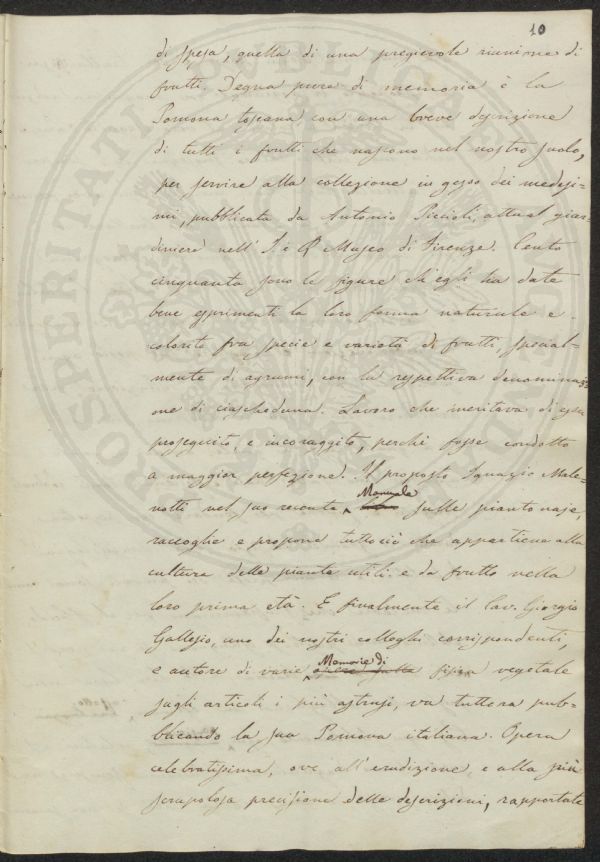 10
di spesa, quella di una pregievole riunione di
frutti. Degna pure di memoria è la
Pomona toscana con una breve descrizione
di tutti i frutti che nascono nel nostro suolo,
per servire alla collezione in gesso dei medesi=
mi, pubblicata da Antonio Piccioli, attual giar=
diniere nell' I. e R Museo di Firenze. Cento
cinquanta sono le figure ch'egli ha date
bene esprimenti la loro forma naturale e
colorito fra specie e varietà di frutti, spezial=
mente di agrumi, con la respettiva denominazi=
one di ciascheduna. Lavoro che meritava di esser
proseguito, e incoraggito, perchè fosse condotto
a maggior perfezione. Il proposto Ignazio Male=
notti nel suo recente Manuale sulle piantonaje,
raccoglie e propone tutto ciò che appartiene alla
cultura delle piante utili e da frutto nella
loro prima età. E finalmente il Cav. Giorgio
Gallesio, uno dei nostri colleghi corrispondenti,
e autore di varie Memorie di opere sulla fisica vegetale
sugli articoli i più astrusi, va tuttora pub=
blicando la sua Pomona italiana. Opera
celebratissima, ove all'erudizione e alla più
scrupolosa precisione delle descrizioni, rapportate
PROSPERITATI PUBLICAE